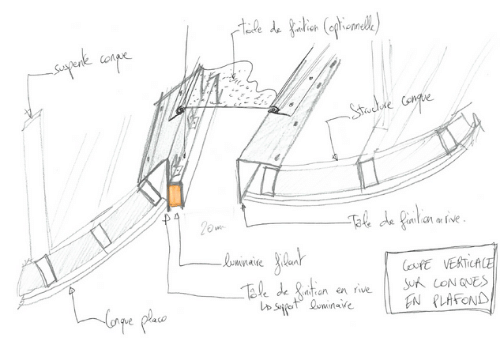 tôle de finition (optionnelle)
suspente conque
Structure conque
Tôle de finition en rive.
20m
luminaire filant
Tôle de finition en rive
↳ support luminaire
Conque placo
COUPE VERTICALE
SUR CONQUES
EN PLAFOND